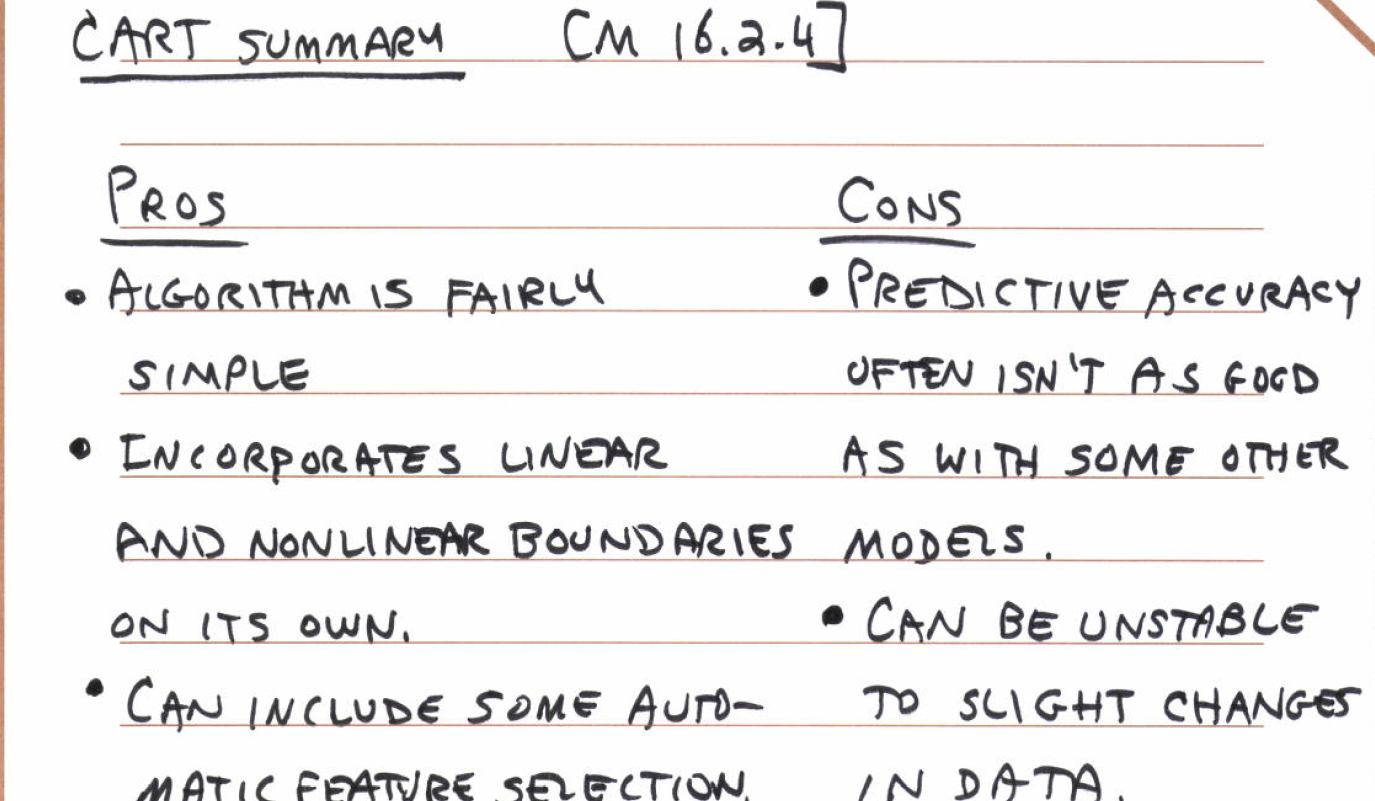 CART SUMMARY [M 16.2.4]
PROS
• ALGORITHM IS FAIRLY
SIMPLE
• INCORPORATES LINEAR
AND NONLINEAR BOUNDARIES
ON ITS OWN.
• CAN INCLUDE SOME AUTO-
MATIC FEATURE SELECTION.
CONS
• PREDICTIVE ACCURACY
OFTEN ISN'T AS GOOD
AS WITH SOME OTHER
MODELS.
• CAN BE UNSTABLE
TO SLIGHT CHANGES
IN DATA.